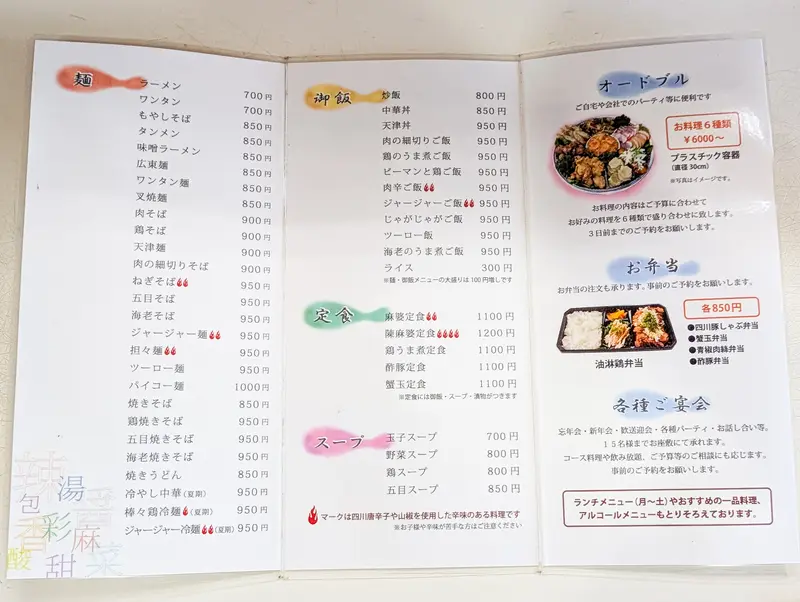 麺
ラーメン 700円
ワンタン 700円
もやしそば 850円
タンメン 850円
味噌ラーメン 850円
広東麺 850円
ワンタン麺 850円
叉焼麺 850円
肉そば 900円
鶏そば 900円
天津麺 900円
肉の細切りそば 900円
ねぎそば 950円
五目そば 950円
海老そば 950円
ジャージャー麺 950円
担々麺 950円
ツーロー麺 950円
パイコー麺 1000円
焼きそば 850円
鶏焼きそば 950円
五目焼きそば 950円
海老焼きそば 950円
焼きうどん 850円
冷やし中華(夏期) 950円
棒々鶏冷麺(夏期) 950円
ジャージャー冷麺(夏期) 950円
辣
湯
包
香
彩
麻
酸
甜
菜
御飯
炒飯 800円
中華丼 850円
天津丼 950円
肉の細切りご飯 950円
鶏のうま煮ご飯 950円
ピーマンと鶏ご飯 950円
肉辛ご飯 950円
ジャージャーご飯 950円
じゃがじゃがご飯 950円
ツーロー飯 950円
海老のうま煮ご飯 950円
ライス 300円
※麺・御飯メニューの大盛りは100円増しです
定食
麻婆定食 1100円
陳麻婆定食 1200円
鶏うま煮定食 1100円
酢豚定食 1100円
蟹玉定食 1100円
※定食には御飯・スープ・漬物がつきます
スープ
玉子スープ 700円
野菜スープ 800円
鶏スープ 800円
五目スープ 850円
マークは四川唐辛子や山椒を使用した辛味のある料理です
※お子様や辛味が苦手な方はご注意ください
オードブル
ご自宅や会社でのパーティ等に便利です
お料理6種類
¥6000~
プラスチック容器
(直径30cm)
※写真はイメージです。
お料理の内容はご予算に合わせて
お好みの料理を6種類で盛り合わせに致します。
3日前までのご予約をお願いします。
お弁当
お弁当の注文も承ります。事前のご予約をお願いします。
各850円
●四川豚しゃぶ弁当
●蟹玉弁当
●青椒肉絲弁当
●酢豚弁当
油淋鶏弁当
各種ご宴会
忘年会・新年会・歓送迎会・各種パーティ・お話し合い等。
15名様までお座敷にて承れます。
コース料理や飲み放題、ご予算等のご相談にも応じます。
事前のご予約をお願いします。
ランチメニュー(月〜土)やおすすめの一品料理、
アルコールメニューもとりそろえております。